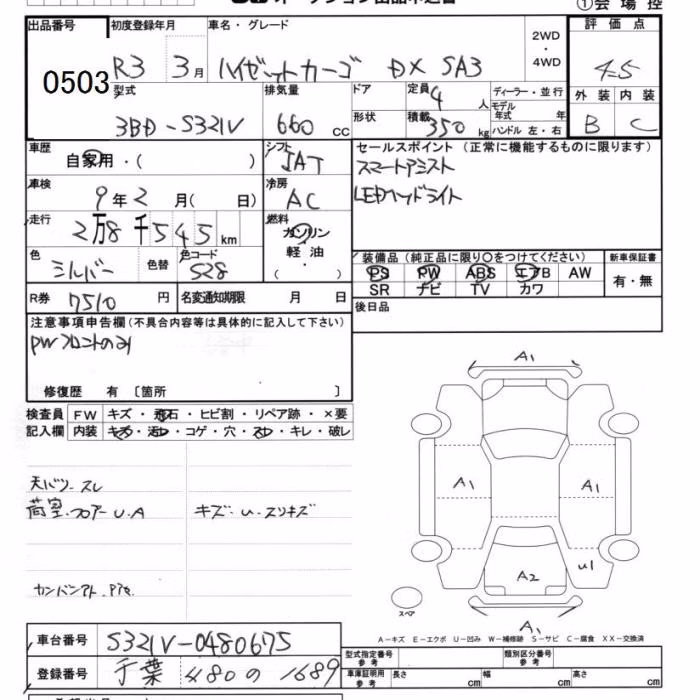 ①会場控
出品番号 初度登録年月 車名・グレード 2WD ・ 4WD 評価点
0503 R3 3月 ハイゼットカーゴ DX SA3 4.5
型式 排気量 ドア 定員 4人 ディーラー・並行 外装 内装
3BD-S321V 660cc 形状 積載 350kg モデル年式 年 ハンドル 左・右 B C
車歴 自家用・( ) シフト IAT セールスポイント(正常に機能するものに限ります)
スマートアシスト
車検 9年2月( 日) 冷房 AC LEDヘッドライト
走行 2万8千545km 燃料 ガソリン
軽油
( )
色 シルバー 色替 色コード S28 装備品(純正品に限り○をつけてください) 新車保証書
PS PW ABS エアB AW 有・無
SR ナビ TV カワ
R券 7510円 名変通知期限 月 日 後日品
注意事項申告欄(不具合内容等は具体的に記入して下さい)
PWフロントのみ
修復歴 有 〔箇所 〕
検査員 FW キズ・飛石・ヒビ割・リペア跡・×要
記入欄 内装 キズ・汚れ・コゲ・穴・スレ・キレ・破レ
A1
A1 A1
天バリ・スレ
荷室・フロアー U.A キズ・U・スリキズ
U1
A2
カンバンアト
スペア
A1
A-キズ E-エクボ U-凹み W-補修跡 S-サビ C-腐食 XX-交換済
車台番号 S321V-0480675 型式指定番号 参考 類別区分番号 参考
登録番号 千葉 480 の 1689 車庫証明用 参考 長さ cm 幅 cm 高さ cm